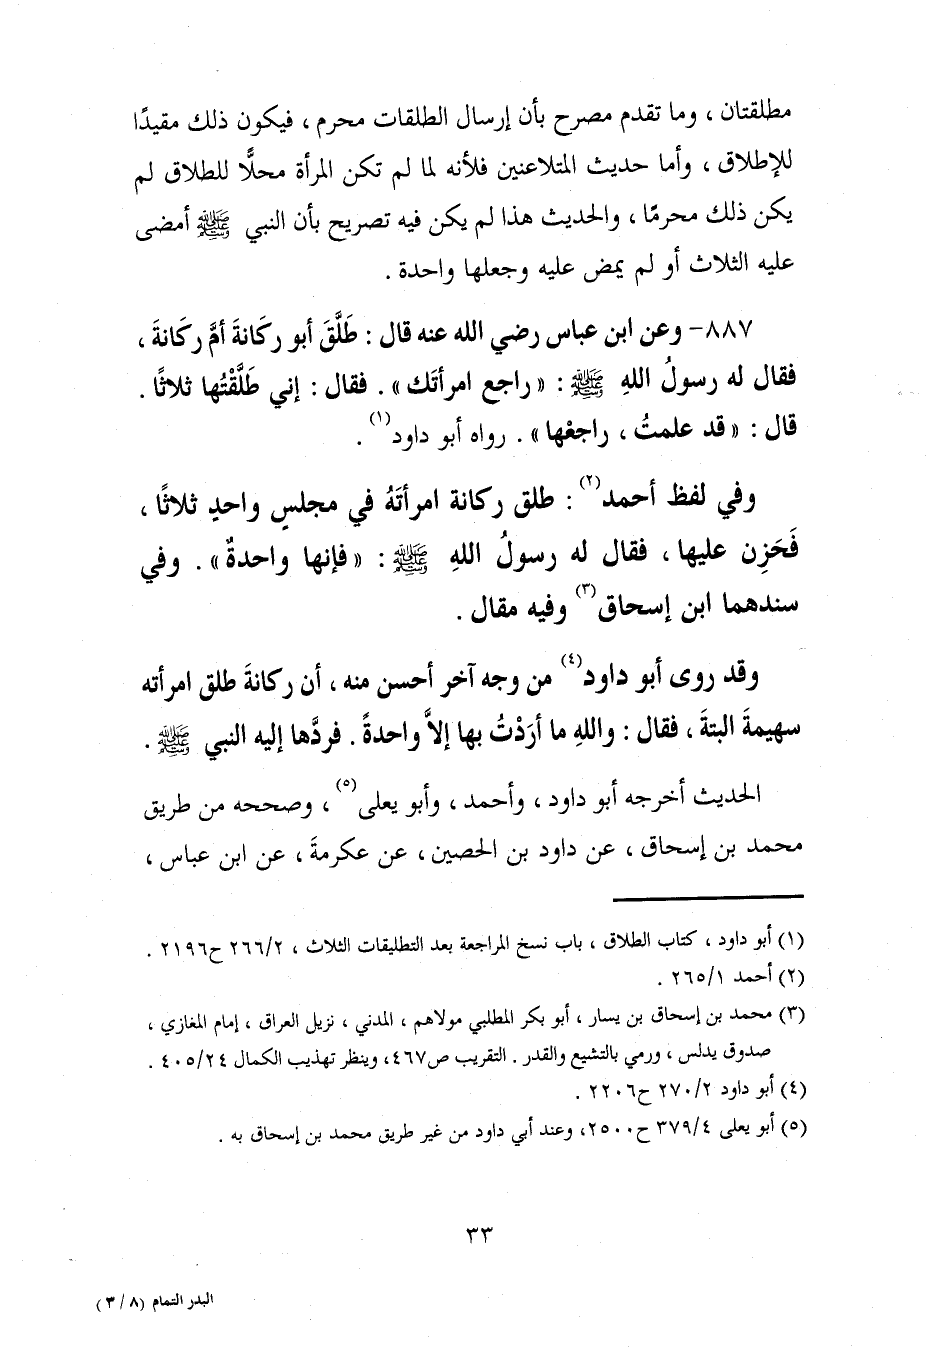 مطلقتان ، وما تقدم مصرح بأن إرسال الطلقات محرم ، فيكون ذلك مقيدًا
للإطلاق ، وأما حديث المتلاعنين فلأنه لما لم تكن المرأة محلًّا للطلاق لم
يكن ذلك محرمًا ، والحديث هذا لم يكن فيه تصريح بأن النبي ﷺ أمضى
عليه الثلاث أو لم يمض عليه وجعلها واحدة .
٨٨٧- وعن ابن عباس رضي الله عنه قال : طَلَّقَ أبو ركَانةَ أمَّ ركَانةَ ،
فقال له رسولُ اللهِ ﷺ : « راجع امرأتَك» . فقال : إني طَلَّقْتُها ثلاثًا .
قال : « قد علمتُ ، راجعْها» . رواه أبو داود(١) .
وفي لفظ أحمد(٢) : طلق ركانة امرأتَهُ في مجلسٍ واحدٍ ثلاثًا ،
فَحَزِن عليها ، فقال له رسولُ اللهِ ﷺ : « فإنها واحدةٌ» . وفي
سندهما ابن إسحاق(٣) وفيه مقال .
وقد روى أبو داود(٤) من وجه آخر أحسن منه ، أن ركانةَ طلق امرأته
سهيمةَ البتةَ ، فقال : واللهِ ما أرَدْتُ بها إلاَّ واحدةً . فردَّها إليه النبي ﷺ .
الحديث أخرجه أبو داود ، وأحمد ، وأبو يعلى(٥) ، وصححه من طريق
محمد بن إسحاق ، عن داود بن الحصين، عن عكرمةَ ، عن ابن عباس ،
(١) أبو داود ، كتاب الطلاق ، باب نسخ المراجعة بعد التطليقات الثلاث ، ٢/ ٢٦٦ ح٢١٩٦ .
(٢) أحمد ١/ ٢٦٥ .
(٣) محمد بن إسحاق بن يسار ، أبو بكر المطلبي مولاهم ، المدني ، نزيل العراق ، إمام المغازي ،
صدوق يدلس ، ورمي بالتشيع والقدر . التقريب ص٤٦٧، وينظر تهذيب الكمال ٢٤/ ٤٠٥ .
(٤) أبو داود ٢/ ٢٧٠ ح٢٢٠٦ .
(٥) أبو يعلى ٤/ ٣٧٩ ح٢٥٠٠، وعند أبي داود من غير طريق محمد بن إسحاق به .
٣٣
البدر التمام (٨ / ٣)